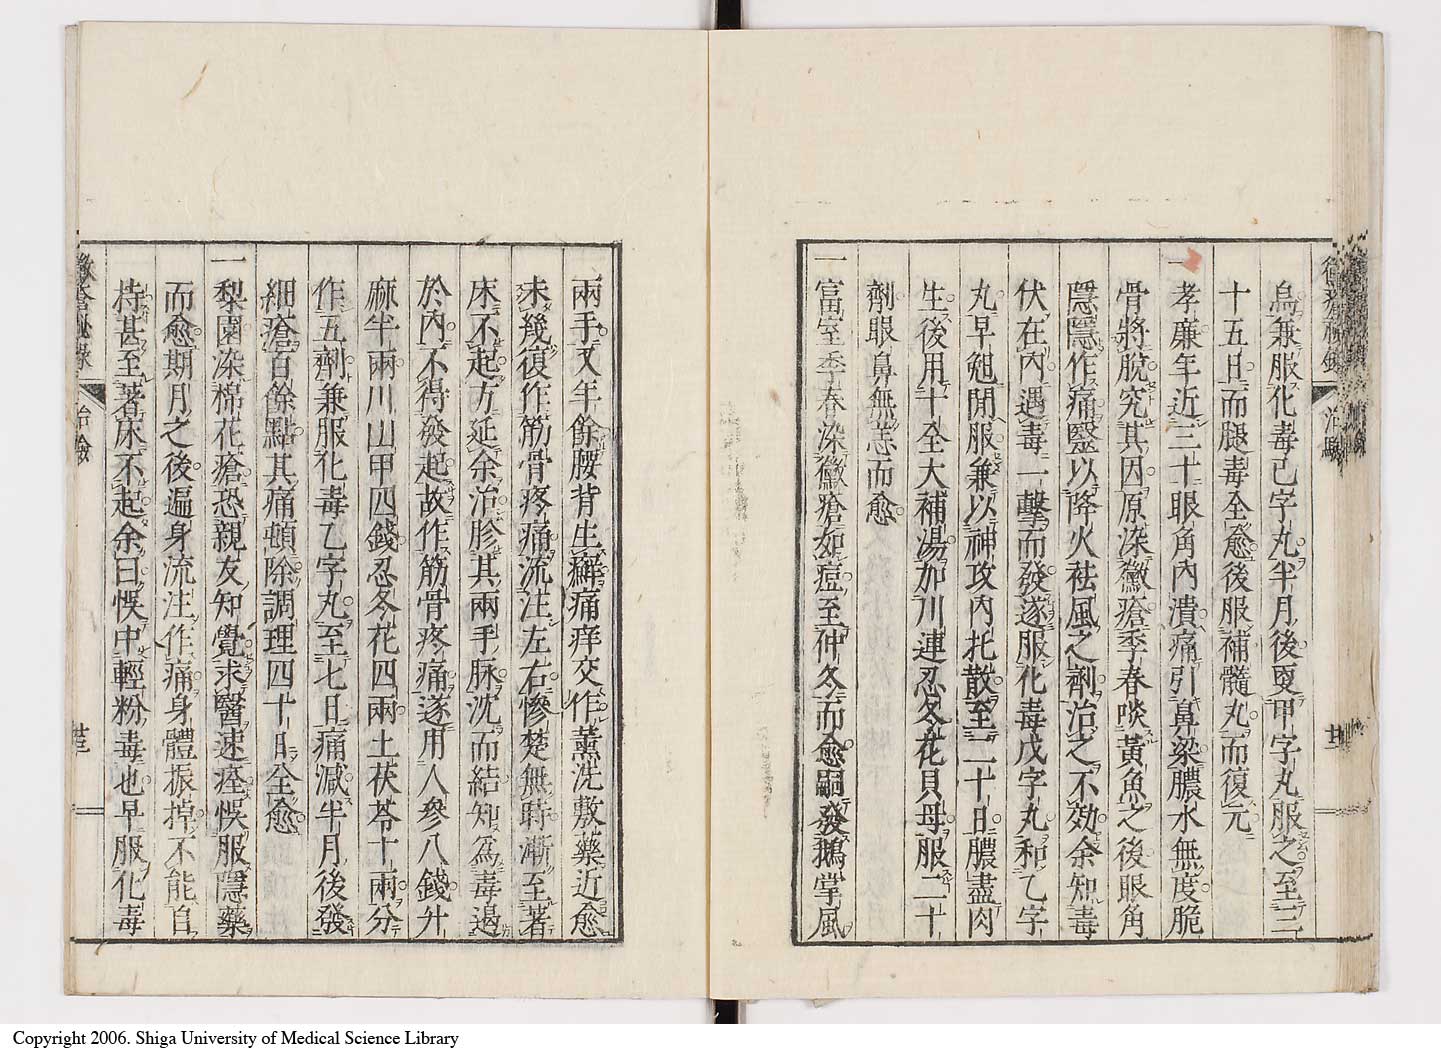 烏兼服化毒己字丸半月後更甲字丸服之至三
十五日而腿毒全愈後服補髓丸而復元
一孝廉年近三十眼角內潰痛引鼻梁膿水無度脆
骨將脫究其因原染黴瘡季春啖黃魚之後眼角
隱隱作痛醫以降火袪風之劑治之不効余知毒
伏在內遇毒一擊而發遂服化毒戊字丸和乙字
丸早兔閒服兼以神攻內托散至二十日膿盡肉
生後用十全大補湯加川連忍冬花貝母服二十
劑眼鼻無恙而愈
一富室季春染黴瘡如痘至仲冬而愈嗣發鵝掌風
黴瘡秘錄
治驗
兩手又年餘腰背生癬痛痒交作薰洗敷藥近愈
未幾復作筋骨疼痛流注左右慘楚無時漸至著
床不起方延余治胗其兩手脉沈而結知為毒遏
於內不得發起故作筋骨疼痛遂用人參八錢升
麻半兩川山甲四錢忍冬花四兩土茯苓十兩分
作五劑兼服化毒乙字丸至七日痛減半月後發
細瘡百餘點其痛頓除調理四十日全愈
一梨園染棉花瘡恐親友知覺求醫速痊悞服隱藥
而愈期月之後遍身流注作痛身體振掉不能自
持甚至著床不起余曰悞中輕粉毒也早服化毒
黴瘡秘錄
治驗
廿三